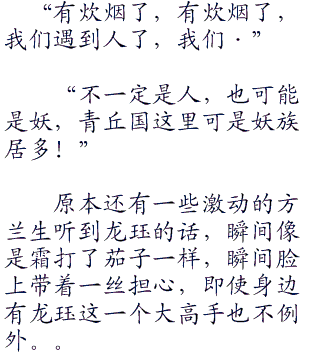 “有炊烟了，有炊烟了，
我们遇到人了，我们·”
“不一定是人，也可能
是妖，青丘国这里可是妖族
居多！”
原本还有一些激动的方
兰生听到龙珏的话，瞬间像
是霜打了茄子一样，瞬间脸
上带着一丝担心，即使身边
有龙珏这一个大高手也不例
外。。